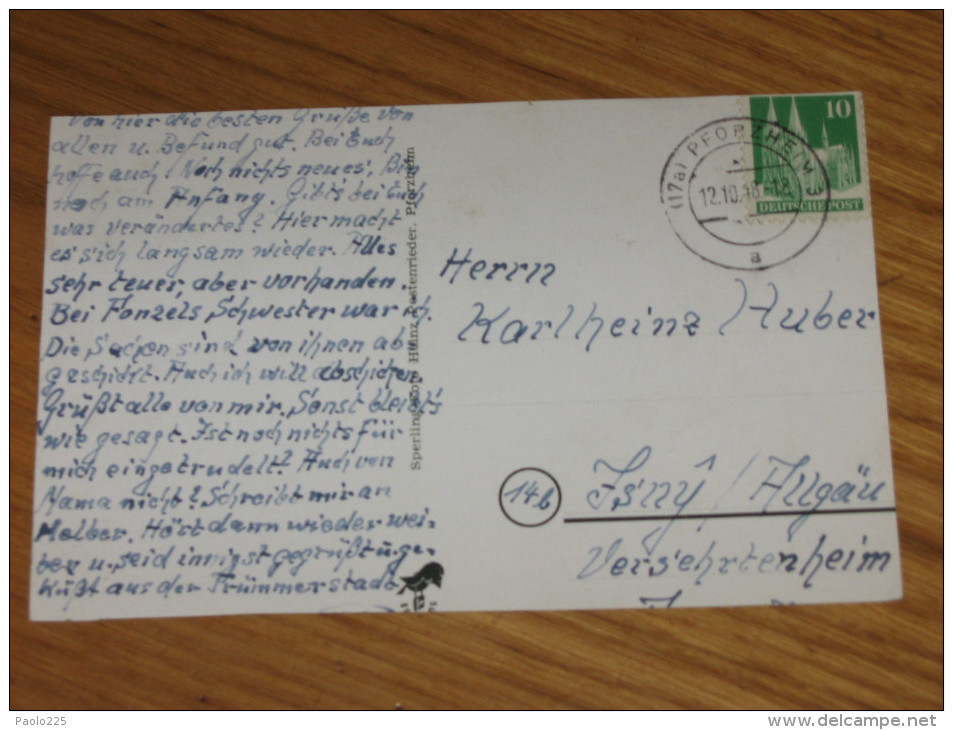 Von hier die besten Grüße von
allen u. Befund gut. Bei Euch
hoffe auch. Noch nichts neues, Bin
noch am Anfang. Gibt's bei Euch
was verändertes? Hier macht
es sich langsam wieder. Alles
sehr teuer, aber vorhanden.
Bei Fonzels Schwester war ich.
Die Sachen sind von ihnen ab
geschickt. Auch ich will abschicken.
Grüßt alle von mir. Sonst bleibt's
wie gesagt. Ist noch nichts für
mich eingetrudelt? Auch von
Mama nicht? Schreibt mir an
Melber. Hört dann wieder wei-
ter u. seid innigst gegrüßt u. ge-
küßt aus der Trümmerstadt
Sperlingsfoto Heinz Pestenrieder. Pforzheim
10
DEUTSCHE POST
(17a) PFORZHEIM
12.10.48
a
Herrn
Karlheinz Huber
14b
Isny / Allgäu
Versehrtenheim
Paolo225
http://www.delcampe.net